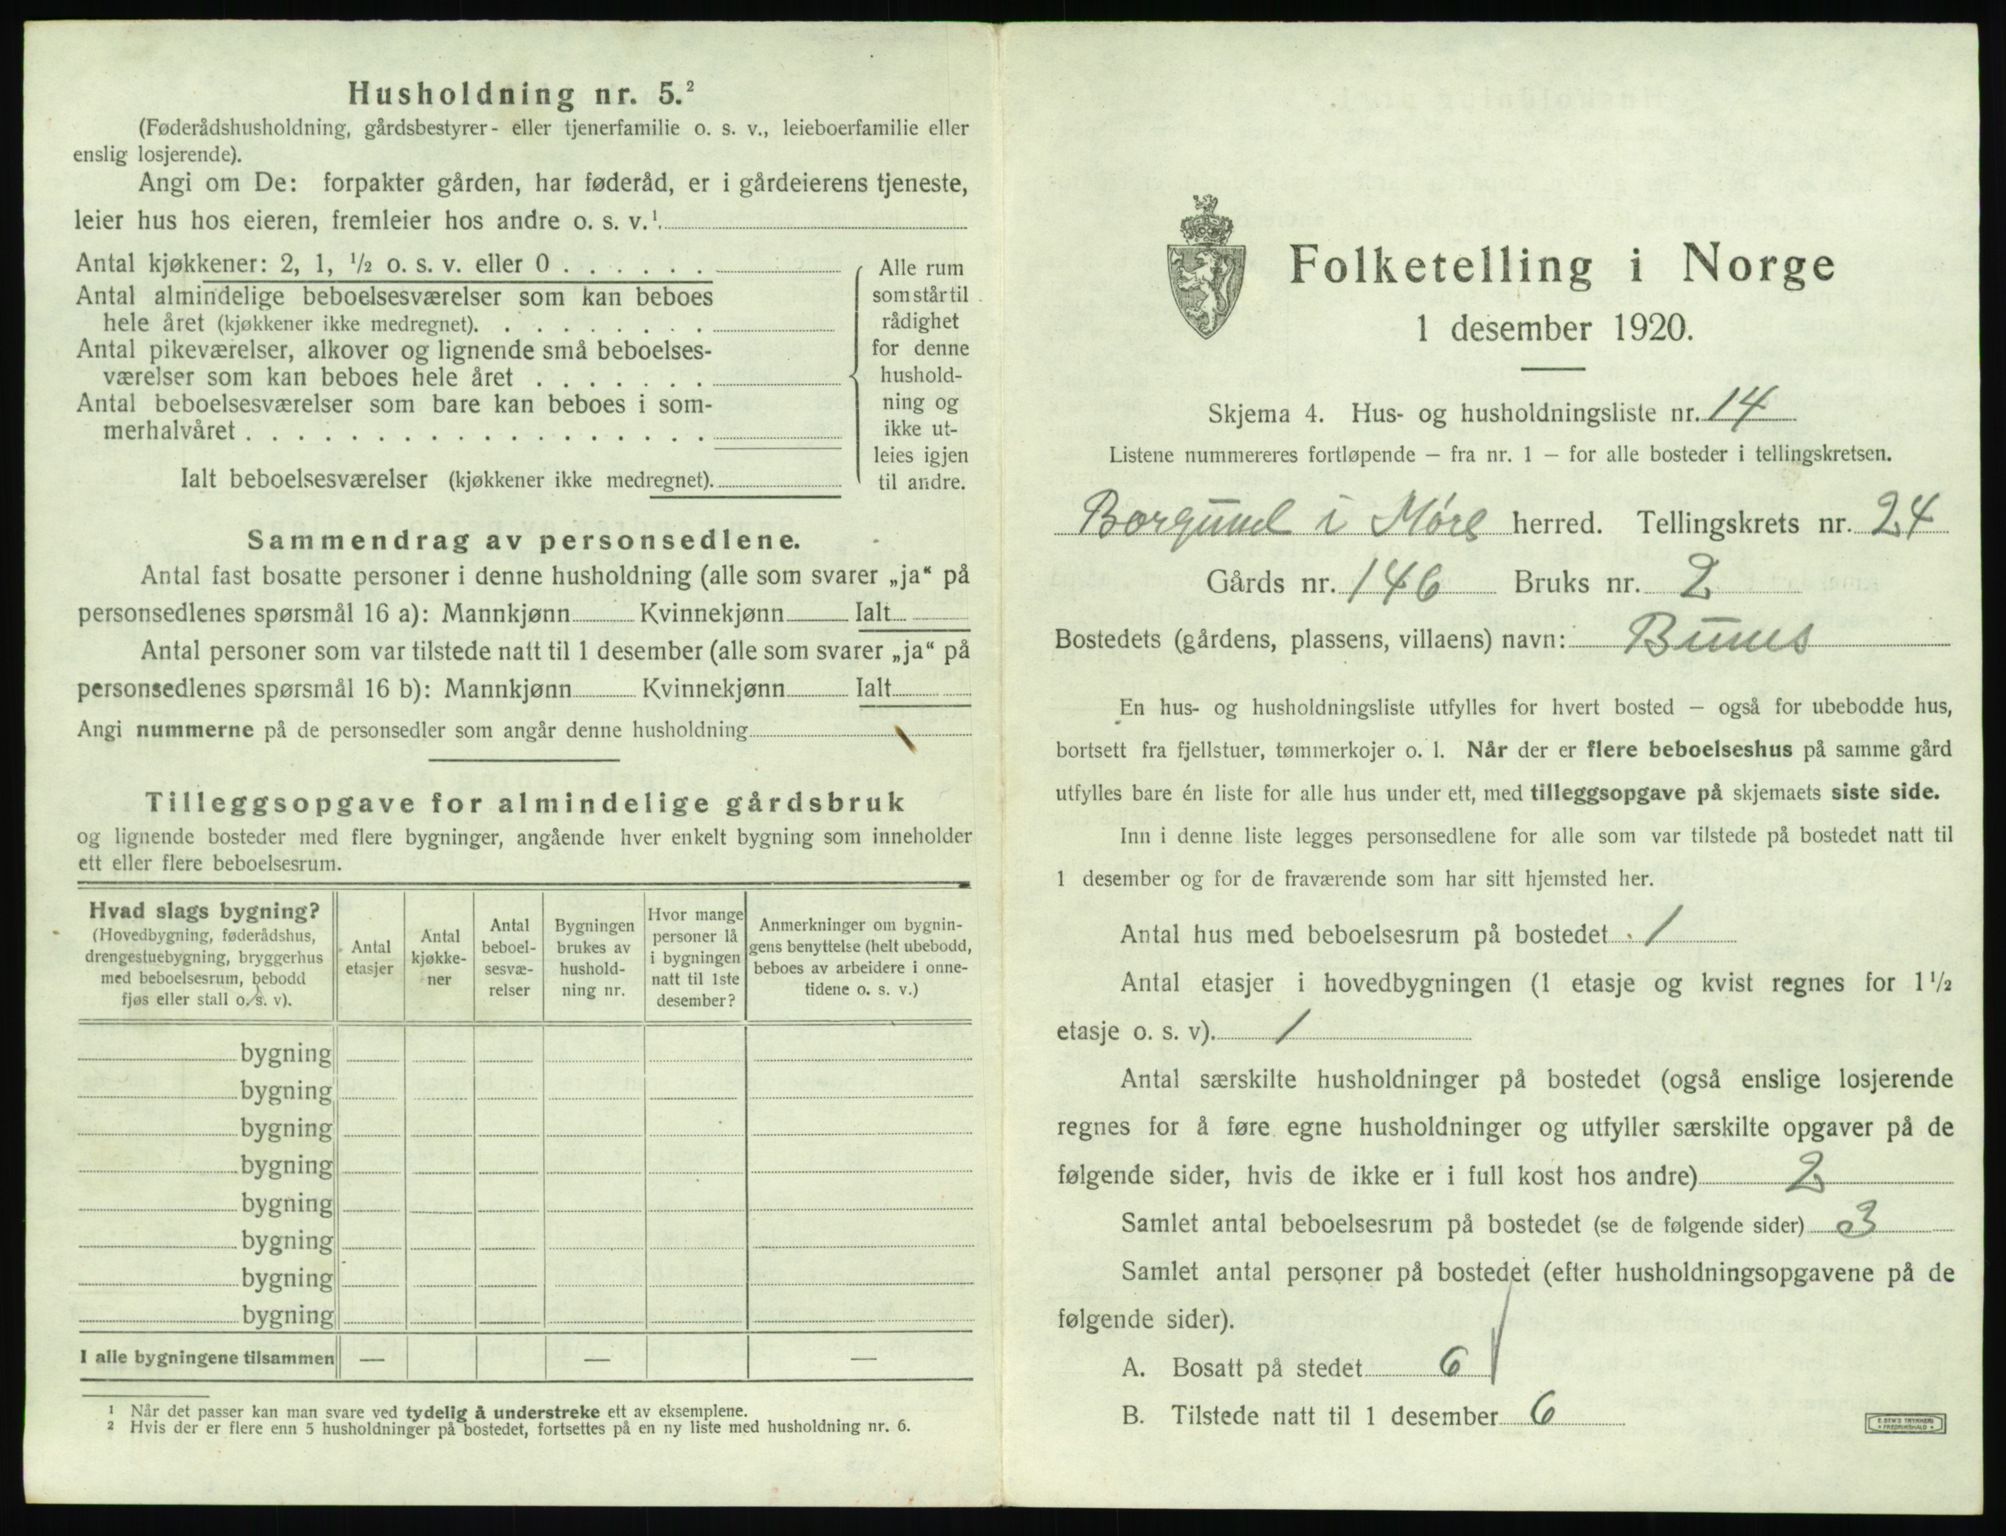 Husholdning nr. 5.²
(Føderådshusholdning, gårdsbestyrer- eller tjenerfamilie o. s. v., leieboerfamilie eller
enslig losjerende).
Angi om De: forpakter gården, har føderåd, er i gårdeierens tjeneste,
leier hus hos eieren, fremleier hos andre o. s. v.¹
Antal kjøkkener: 2, 1, ½ o. s. v. eller 0 . . . . . .
Antal almindelige beboelsesværelser som kan beboes
hele året (kjøkkener ikke medregnet). . . . . . . . .
Antal pikeværelser, alkover og lignende små beboelses-
værelser som kan beboes hele året . . . . . . .
Antal beboelsesværelser som bare kan beboes i som-
merhalvåret . . . . . . . . . . . . . . . . . .
Ialt beboelsesværelser (kjøkkener ikke medregnet).
Alle rum
som står til
rådighet
for denne
hushold-
ning og
ikke ut-
leies igjen
til andre.
Sammendrag av personsedlene.
Antal fast bosatte personer i denne husholdning (alle som svarer „ja“ på
personsedlenes spørsmål 16 a): Mannkjønn Kvinnekjønn Ialt
Antal personer som var tilstede natt til 1 desember (alle som svarer „ja“ på
personsedlenes spørsmål 16 b): Mannkjønn Kvinnekjønn Ialt
Angi nummerne på de personsedler som angår denne husholdning
Tilleggsopgave for almindelige gårdsbruk
og lignende bosteder med flere bygninger, angående hver enkelt bygning som inneholder
ett eller flere beboelsesrum.
Hvad slags bygning?
(Hovedbygning, føderådshus,
drengestuebygning, bryggerhus
med beboelsesrum, bebodd
fjøs eller stall o. s. v).
Antal
etasjer
Antal
kjøkke-
ner
Antal
beboel-
sesvæ-
relser
Bygningen
brukes av
hushold-
ning nr.
Hvor mange
personer lå
i bygningen
natt til 1ste
desember?
Anmerkninger om bygnin-
gens benyttelse (helt ubebodd,
beboes av arbeidere i onne-
tidene o. s. v.)
bygning
bygning
bygning
bygning
bygning
bygning
bygning
bygning
I alle bygningene tilsammen — — —
¹ Når det passer kan man svare ved tydelig å understreke ett av eksemplene.
² Hvis der er flere enn 5 husholdninger på bostedet, fortsettes på en ny liste med husholdning nr. 6.
Folketelling i Norge
1 desember 1920.
Skjema 4. Hus- og husholdningsliste nr. 14
Listene nummereres fortløpende – fra nr. 1 – for alle bosteder i tellingskretsen.
Borgund i Møre herred. Tellingskrets nr. 24
Gårds nr. 146 Bruks nr. 2
Bostedets (gårdens, plassens, villaens) navn:
En hus- og husholdningsliste utfylles for hvert bosted – også for ubebodde hus,
bortsett fra fjellstuer, tømmerkojer o. l. Når der er flere beboelseshus på samme gård
utfylles bare én liste for alle hus under ett, med tilleggsopgave på skjemaets siste side.
Inn i denne liste legges personsedlene for alle som var tilstede på bostedet natt til
1 desember og for de fraværende som har sitt hjemsted her.
Antal hus med beboelsesrum på bostedet 1
Antal etasjer i hovedbygningen (1 etasje og kvist regnes for 1½
etasje o. s. v). 1
Antal særskilte husholdninger på bostedet (også enslige losjerende
regnes for å føre egne husholdninger og utfyller særskilte opgaver på de
følgende sider, hvis de ikke er i full kost hos andre) 2
Samlet antal beboelsesrum på bostedet (se de følgende sider) 3
Samlet antal personer på bostedet (efter husholdningsopgavene på de
følgende sider).
A. Bosatt på stedet 6
B. Tilstede natt til 1 desember 6